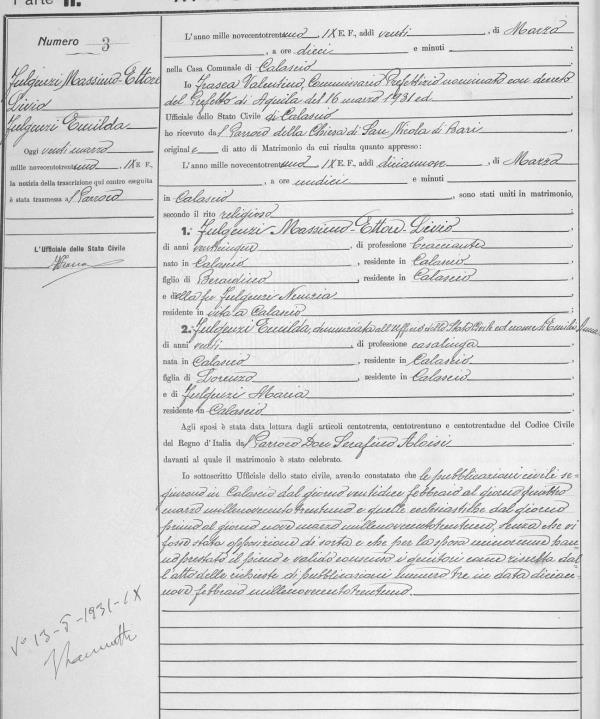 Parte II.
Numero 3
Fulgenzi Massimo-Ettore
Livio
Fulgenzi Emilda
Oggi venti marzo
mille novecentotrentuno, IX E. F.,
la notizia della trascrizione qui contro eseguita
è stata trasmessa a l Parroco
L'Ufficiale dello Stato Civile
V° 13-5-1931-IX
L'anno mille novecentotrentuno, IX E. F., addì venti, di Marzo
, a ore dieci e minuti ,
nella Casa Comunale di Calascio
Io Frasca Valentino, Commissario Prefettizio nominato con decreto
del Prefetto di Aquila del 16 marzo 1931 ed
Ufficiale dello Stato Civile di Calascio
ho ricevuto da l Parroco della Chiesa di San Nicola di Bari
originale di atto di Matrimonio da cui risulta quanto appresso:
L'anno mille novecentotrentuno, IX E. F., addì diciannove, di Marzo
, a ore undici e minuti ,
in Calascio, sono stati uniti in matrimonio,
secondo il rito religioso
1. Fulgenzi Massimo-Ettore-Livio
di anni venticinque, di professione bracciante,
nato in Calascio, residente in Calascio,
figlio di Berardino, residente in Calascio,
e della fu Fulgenzi Nunzia
residente in vita a Calascio
2. Fulgenzi Emilda, denunciata all'ufficio dello Stato Civile col nome di Emilia
di anni venti, di professione casalinga,
nata in Calascio, residente in Calascio,
figlia di Lorenzo, residente in Calascio,
e di Fulgenzi Maria
residente in Calascio
Agli sposi è stata data lettura degli articoli centotrenta, centotrentuno e centotrentadue del Codice Civile
del Regno d'Italia da l Parroco Don Serafino Aloisi
davanti al quale il matrimonio è stato celebrato.
Io sottoscritto Ufficiale dello stato civile, avendo constatato che le pubblicazioni civili se-
guirono in Calascio dal giorno ventidue febbraio al giorno quattro
marzo millenovecentotrentuno e quelle ecclesiastiche dal giorno
primo al giorno nove marzo millenovecentotrentuno, senza che vi
fosse stata opposizione di sorta e che per la sposa minorenne han-
no prestato il pieno e valido consenso i genitori come risulta dal-
l'atto delle richieste di pubblicazioni numero tre in data dician-
nove febbraio millenovecentotrentuno.